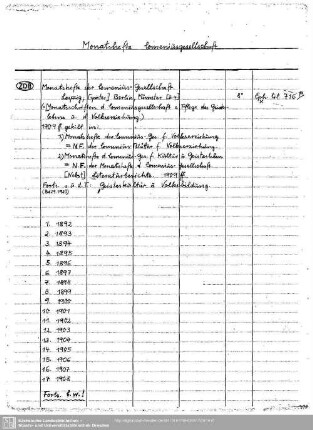 Monatshefte Comeniusgesellschaft
208 Monatshefte der Comenius-Gesellschaft
Leipzig, [später] Berlin, Münster
8° Eph. lit. 736
(= Monatsschriften d. Comeniusgesellschaft z. Pflege der Geistes
lebens u. d. Volkserziehung)
1909 ff. geteilt in:
1) Monatshefte der Comenius-Ges. f. Volkserziehung
= N.F. der Comenius Blätter f. Volkserziehung.
2) Monatshefte d. Comenius-Ges. f. Kultur u. Geistesleben
= N.F. der Monatshefte d. Comenius-Gesellschaft.
[Nebst] Literaturberichte 1909 ff.
Forts. u. d. T.: Geisteskultur u. Volksbildung.
1. 1892
2. 1893
3. 1894
4. 1895
5. 1896
6. 1897
7. 1898
8. 1899
9. 1900
10. 1901
11. 1902
12. 1903
13. 1904
14. 1905
15. 1906
16. 1907
17. 1908
Forts. b.w.!